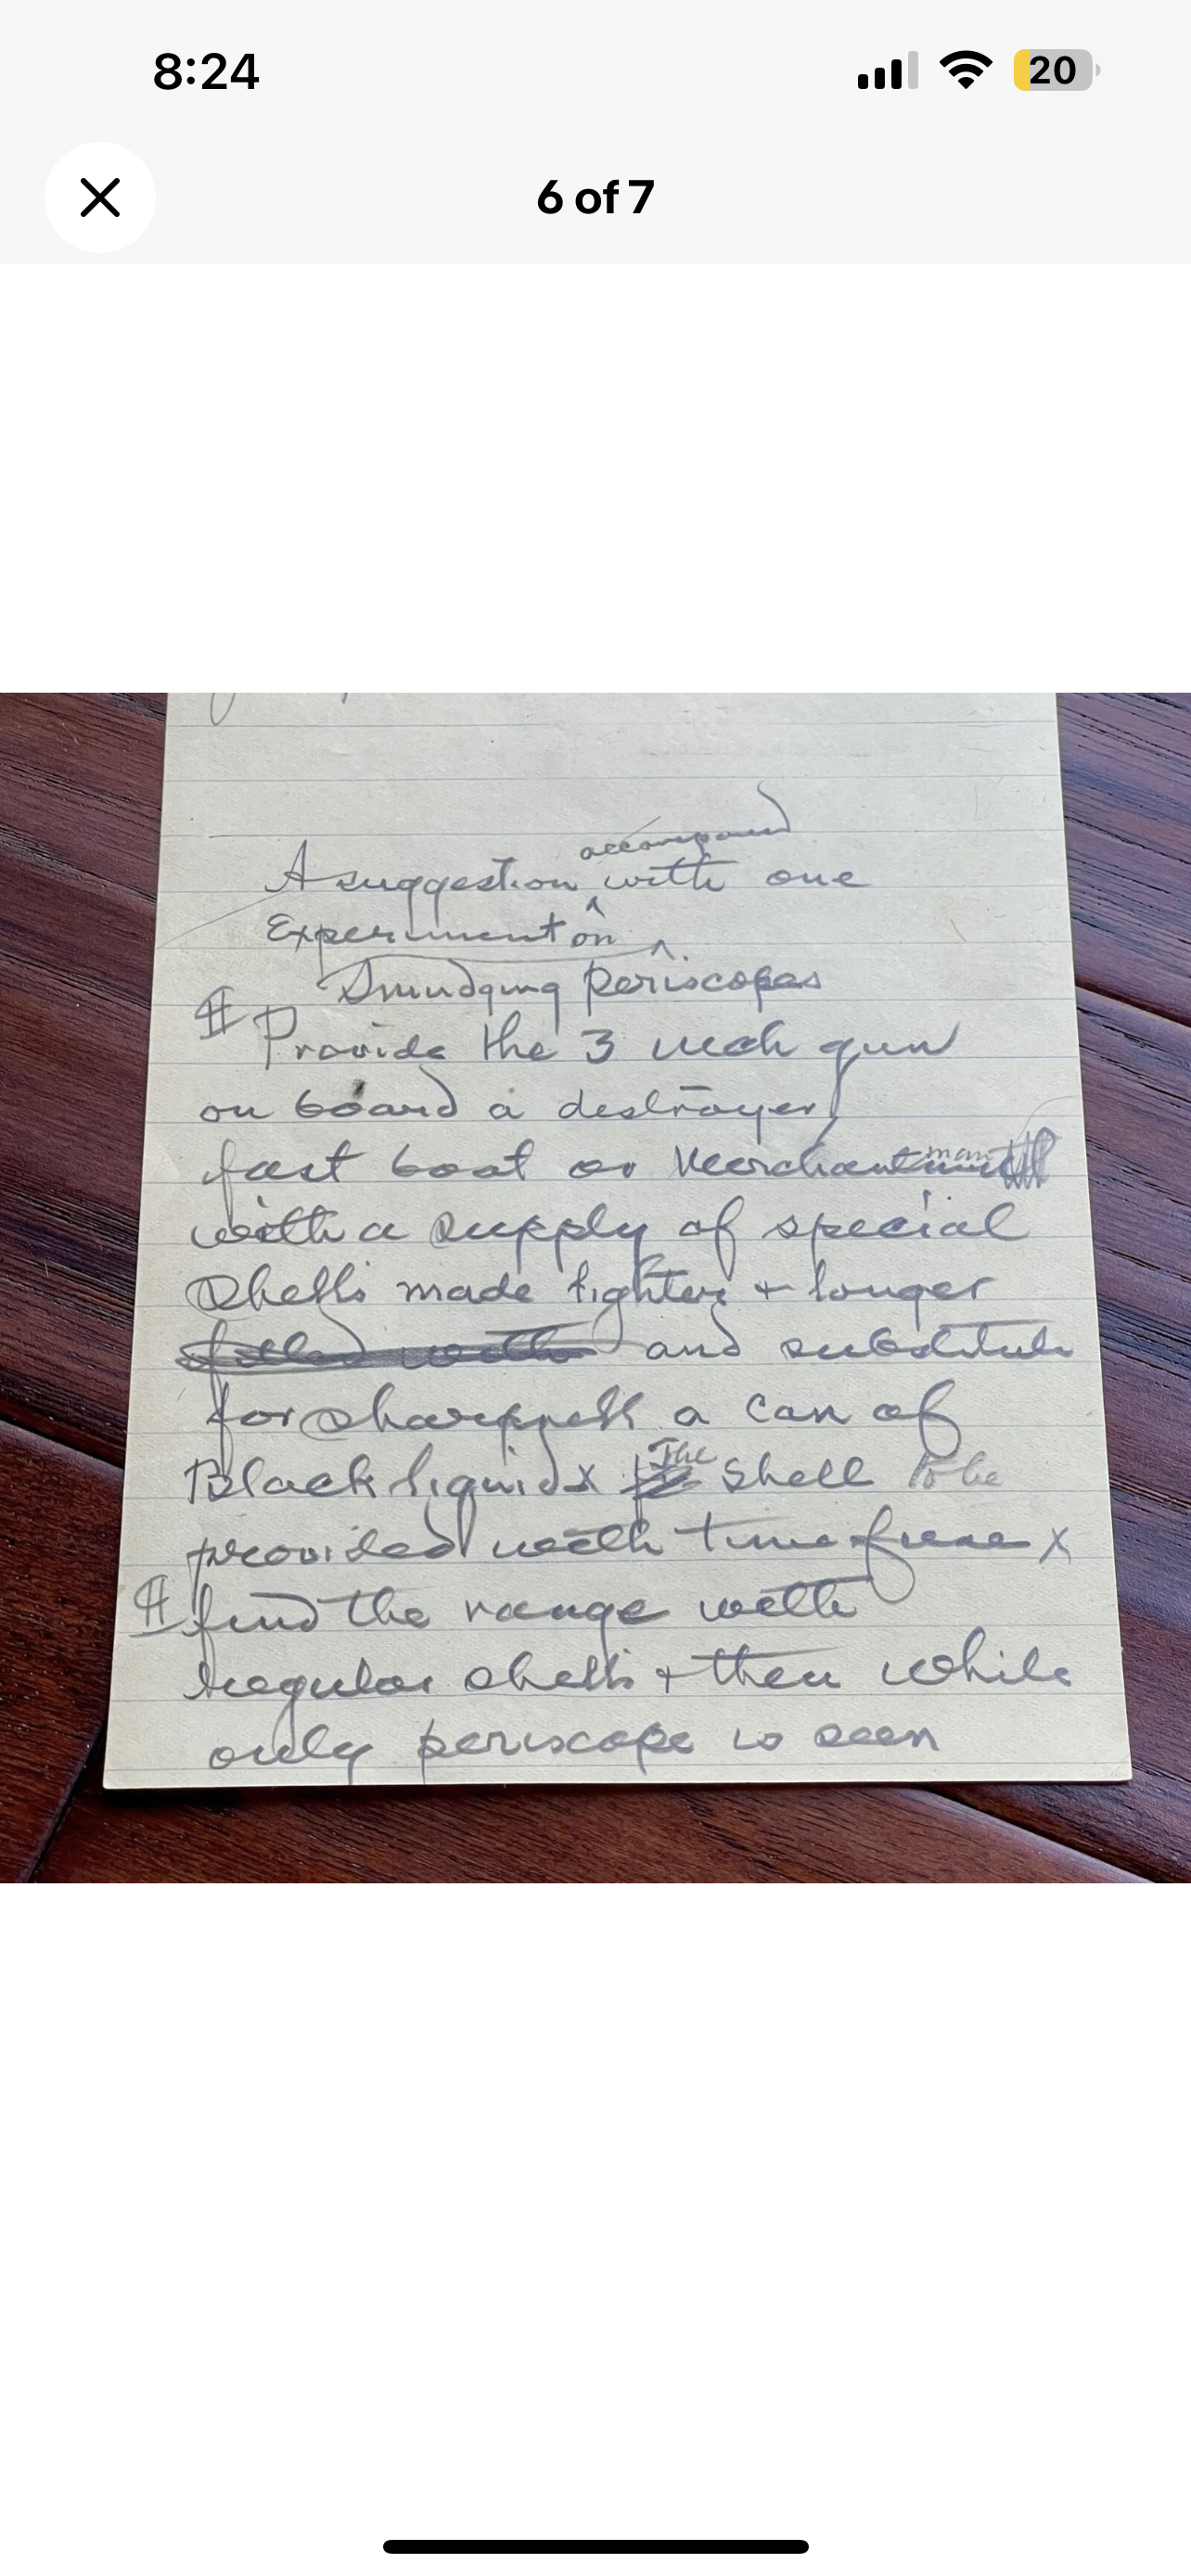 8:24
20
6 of 7
accompanied
A suggestion ^ with one
Experiment on ^.
Smudging periscopes
Provide the 3 inch gun
on board a destroyer
fast boat or Merchantman
with a supply of special
Shells made lighter + longer
filled with and substitute
for sharpnell a can of
Black liquid x The Shell to be
provided with time fuse x
find the range with
regular shells + then while
only periscope is seen